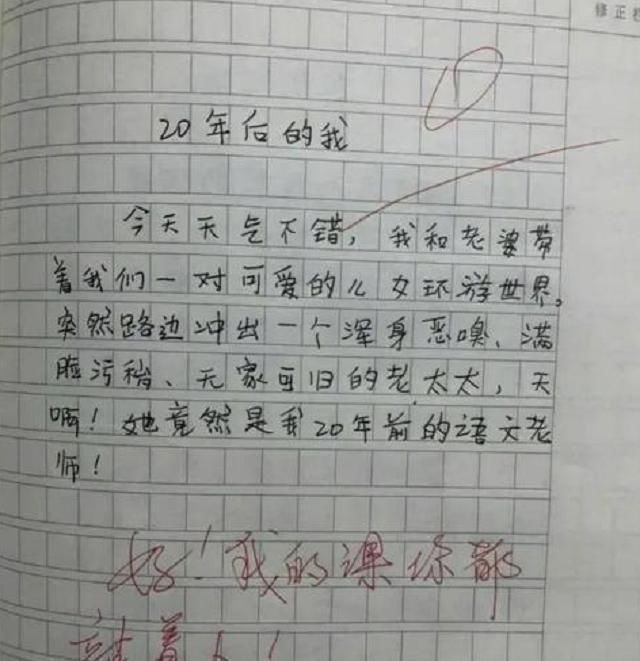 修正
20年后的我
今天天气不错，我和老婆带
着我们一对可爱的儿女环游世界。
突然路边冲出一个浑身恶嗅、满
脸污秽、无家可旧的老太太，天
啊！她竟然是我20年前的语文老
师！
好！我的课你都